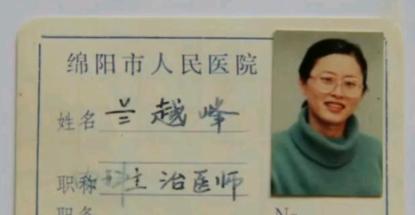 绵阳市人民医院
姓名 兰越峰
职称 主治医师
职务 No